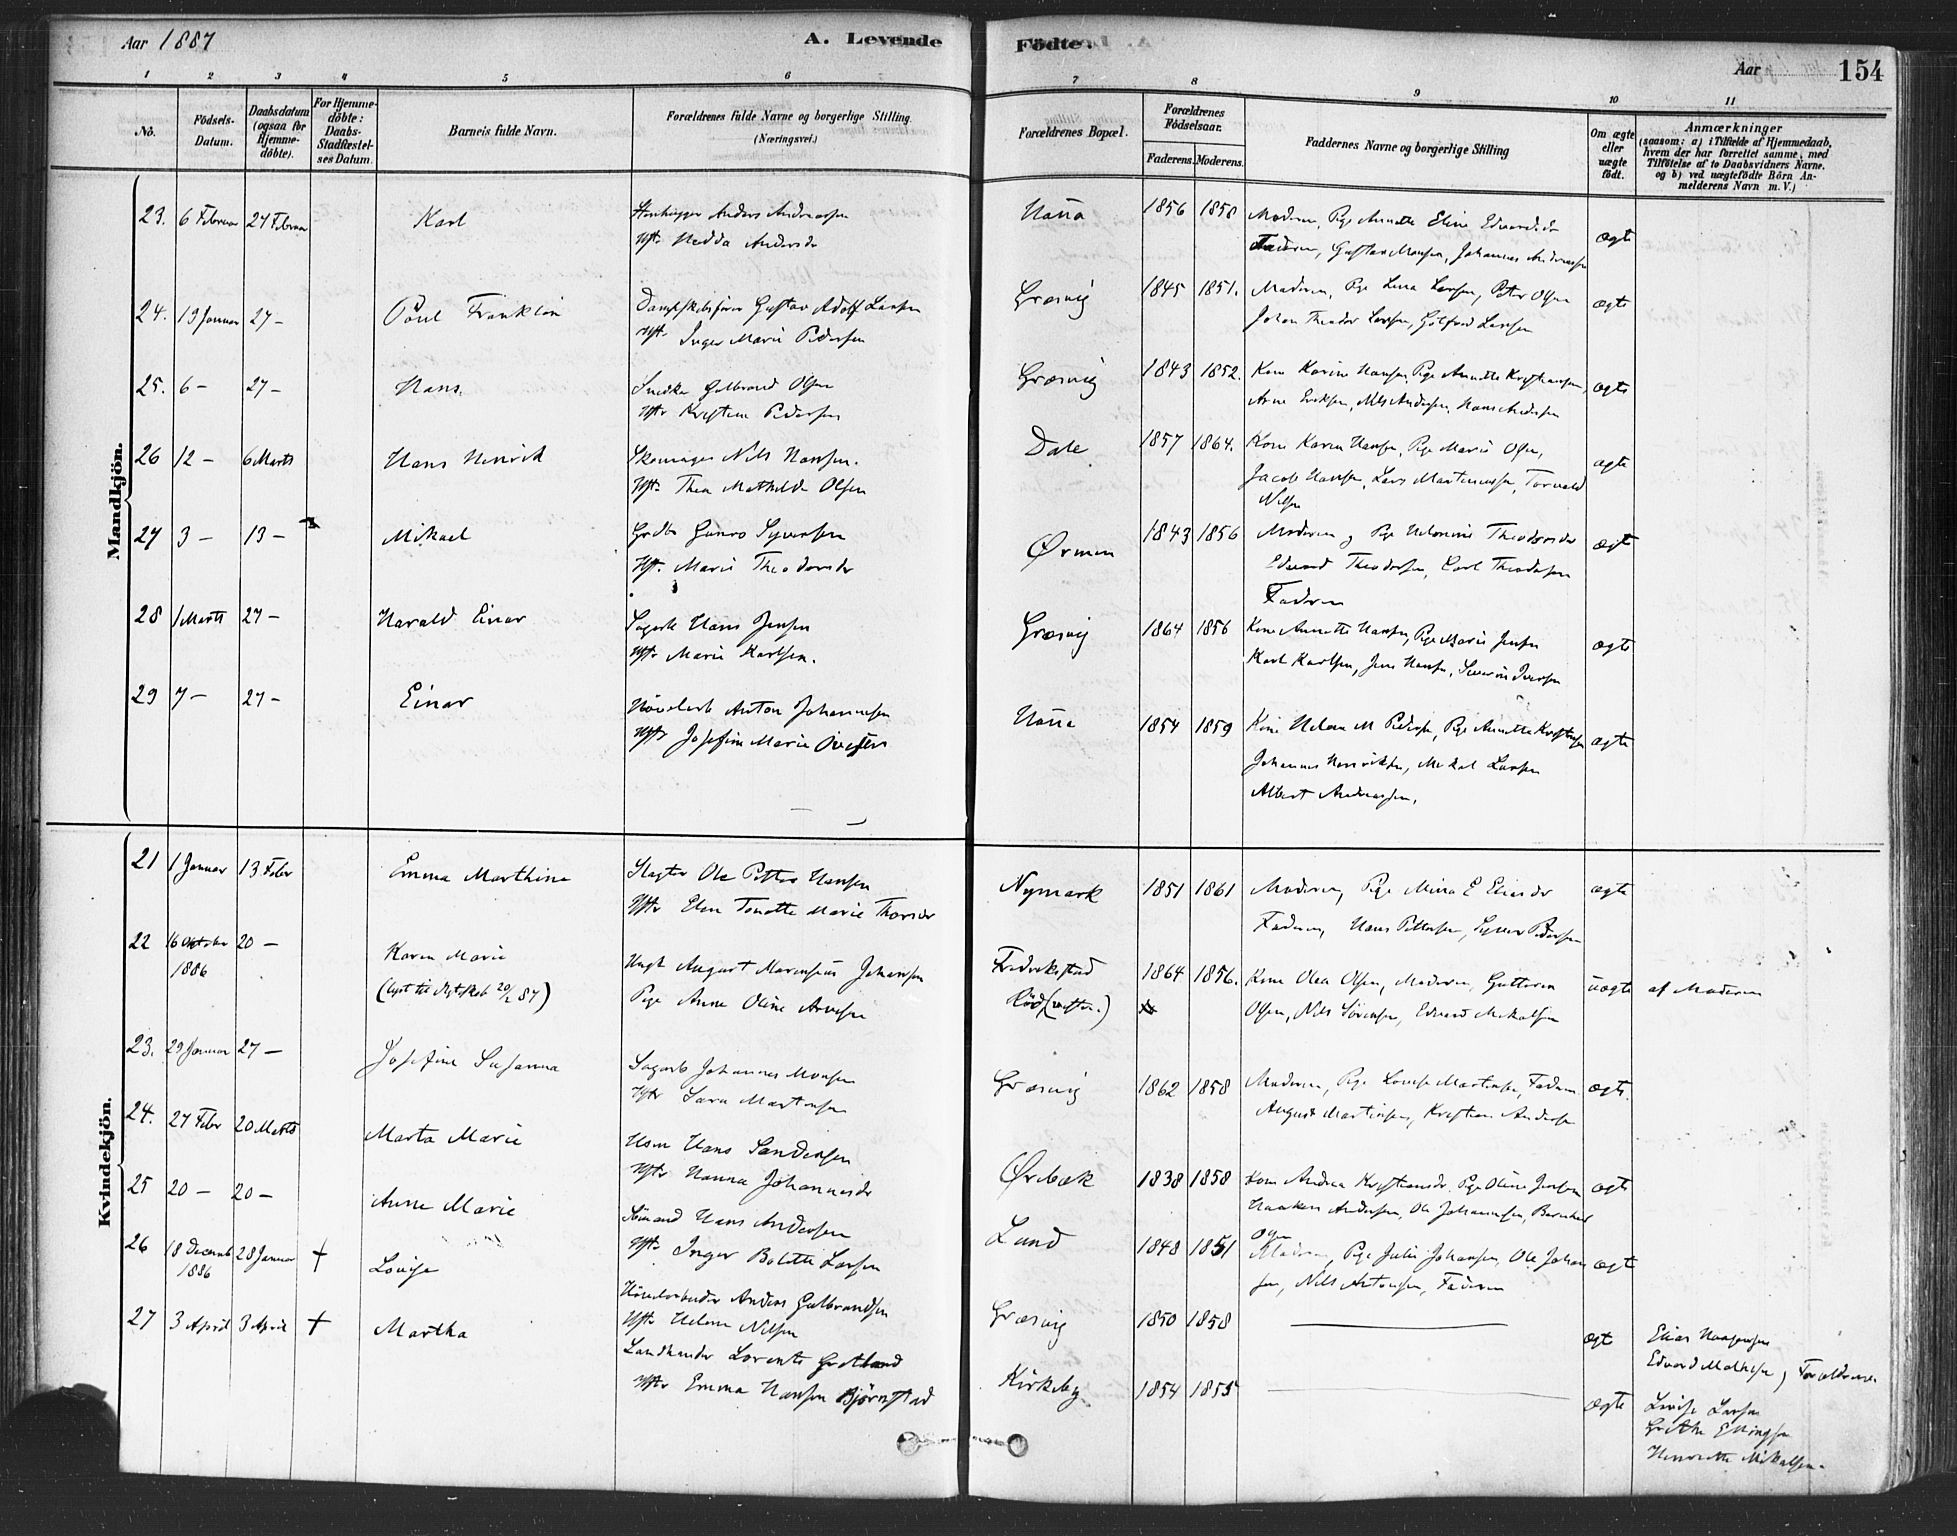 Aar 1887
A. Levende
Födte.
Aar
154
1 2 3 4 5 6 7 8 9 10 11
No.
Födsels-
Datum.
Daabsdatum
(ogsaa for
Hjemme-
döbte).
For Hjemme-
döbte:
Daabs-
Stadfæstel-
ses Datum.
Barnets fulde Navn.
Forældrenes fulde Navne og borgerlige Stilling.
(Næringsvei.)
Forældrenes Bopæl.
Forældrenes
Födselsaar.
Faderens. Moderens.
Faddernes Navne og borgerlige Stilling
Om ægte
eller
uægte
födt.
Anmærkninger
(saasom: a) i Tilfælde af Hjemmedaab,
hvem der har forrettet samme, med
Tilföielse af to Daabsvidners Navne.
og b) ved uægtefödte Börn An-
melderens Navn m. V.)
Mandkjön.
23. 6 Februar 27 Februar Karl
Stenhugger Anders Andreassen
Hst. Hedda Andersdr
1856 1858 Moderen, Pige Annette Eline Edvardsdr
Faderen, Gustav Monsen, Johannes Andreassen
ægte
24. 19 Januar 27 – Paul Franklin
Dampskibsfører Gustav Adolf Larsen
Hst. Inger Marie Pedersen
Græsvig 1845 1851. Moderen, Pige Lina Larsen, Peter Olsen
Johan Theodor Larsen, Larsen
ægte
25. 6 – 27 – Hans
Snedker Gulbrand Olsen
Hstr Kristine Pedersen
Græsvig 1843 1852. Kone Karine Hansen, Pige Annette Kristiansen,
Arne Eriksen, Nils Andersen, Hans Andersen
ægte
26 12 – 6 Marts Hans Henrik
Skomager Nils Hansen.
Hst. Thea Mathilde Olsen
Dale 1857 1864. Kone Karen Hansen, Pige Marie Olsen,
Jacob Hansen, Lars Martinussen, Torvald
Nilsen
ægte
27 3 – 13 – Mikael
Syversen
Hst. Marie Theodorsdr
Ørmen 1843 1856 Moderen og Pige Theodorsdr
Edvard Theodorsen, Carl Theodorsen
Faderen
ægt
28 1 Marts 27 – Harald Einar
Sagarb Hans Jensen
Hstr Marie Karlsen.
Græsvig 1864 1856 Kone Annette Hansen, Pige Marie Jensen
Karl Karlsen, Jens Hansen, Severin Iversen
ægte
29 7 – 27 – Einar
Høvelarb Anton Johannesen
Hstr Josefine Marie
1854 1859 Kone Helene M Pedersen, Pige Annette Kristensen
Johannes Henriksen, Mikal Larsen
Albert Andreassen.
ægte
Kvindekjön.
21 1 Januar 13 Febr Emma Marthine
Slagter Ole Petter Hansen
Hstr Elen Tonette Marie Thorsdr
Nymark 1851 1861 Moderen, Pige Mina E Eliasdr
Faderen, Hans Pettersen, Syver Pedersen
ægte
22 16 Oktober 20 –
1886
Karen Marie
(lyst til Ægteskab 20/2 87)
Ungk August Johansen
Pige Anne Oline Arnesen
Fredrikstad
1864 1856. Kone Olea Olsen, Moderen, Guttorm
Olsen, Nils Sörensen, Edvard Mikalsen
uægte af Moderen
23. 29 Januar 27 – Josefine Susanna
Sagarb Johannes Monsen
Hstr Sara Martinsen
Græsvig 1862 1858 Moderen, Pige Lovise Martinsen, Faderen
August Martinsen, Kristian Andersen
ægte.
24. 27 Febr 20 Marts Marta Marie
Hsm Hans Sandersen
Hstr Hanna Johannesdr
Ørebæk 1838 1858 Kone Andrea Kristiansdr. Pige Oline Jensen
Haaken Andersen, Ole Johannesen, Bernhard
Olsen
ægte
25 20 – 20 – Anne Marie
Sömand Hans Andersen
Hstr Inger Bolette Larsen
Lund 1848 1851 Moderen, Pige Julie Johansen, Ole Johan
sen, Nils Antonsen, Faderen
ægte
26 18 Decemb 28 Januar + Lovise
1886
Hövelarbeider Anders Gulbrandsen
Hstr Helene Nilsen
Græsvig 1850 1858
ægt Elias
Edvard , Forældrene
27 3 April 3 April + Martha
Landhandler Lorents Grotland
Hstr Emma Hansen Björnstad
Kirkeby 1854 1855
ægte Lovise Larsen
Grethe Ellingsen
Henriette Mikalsen.